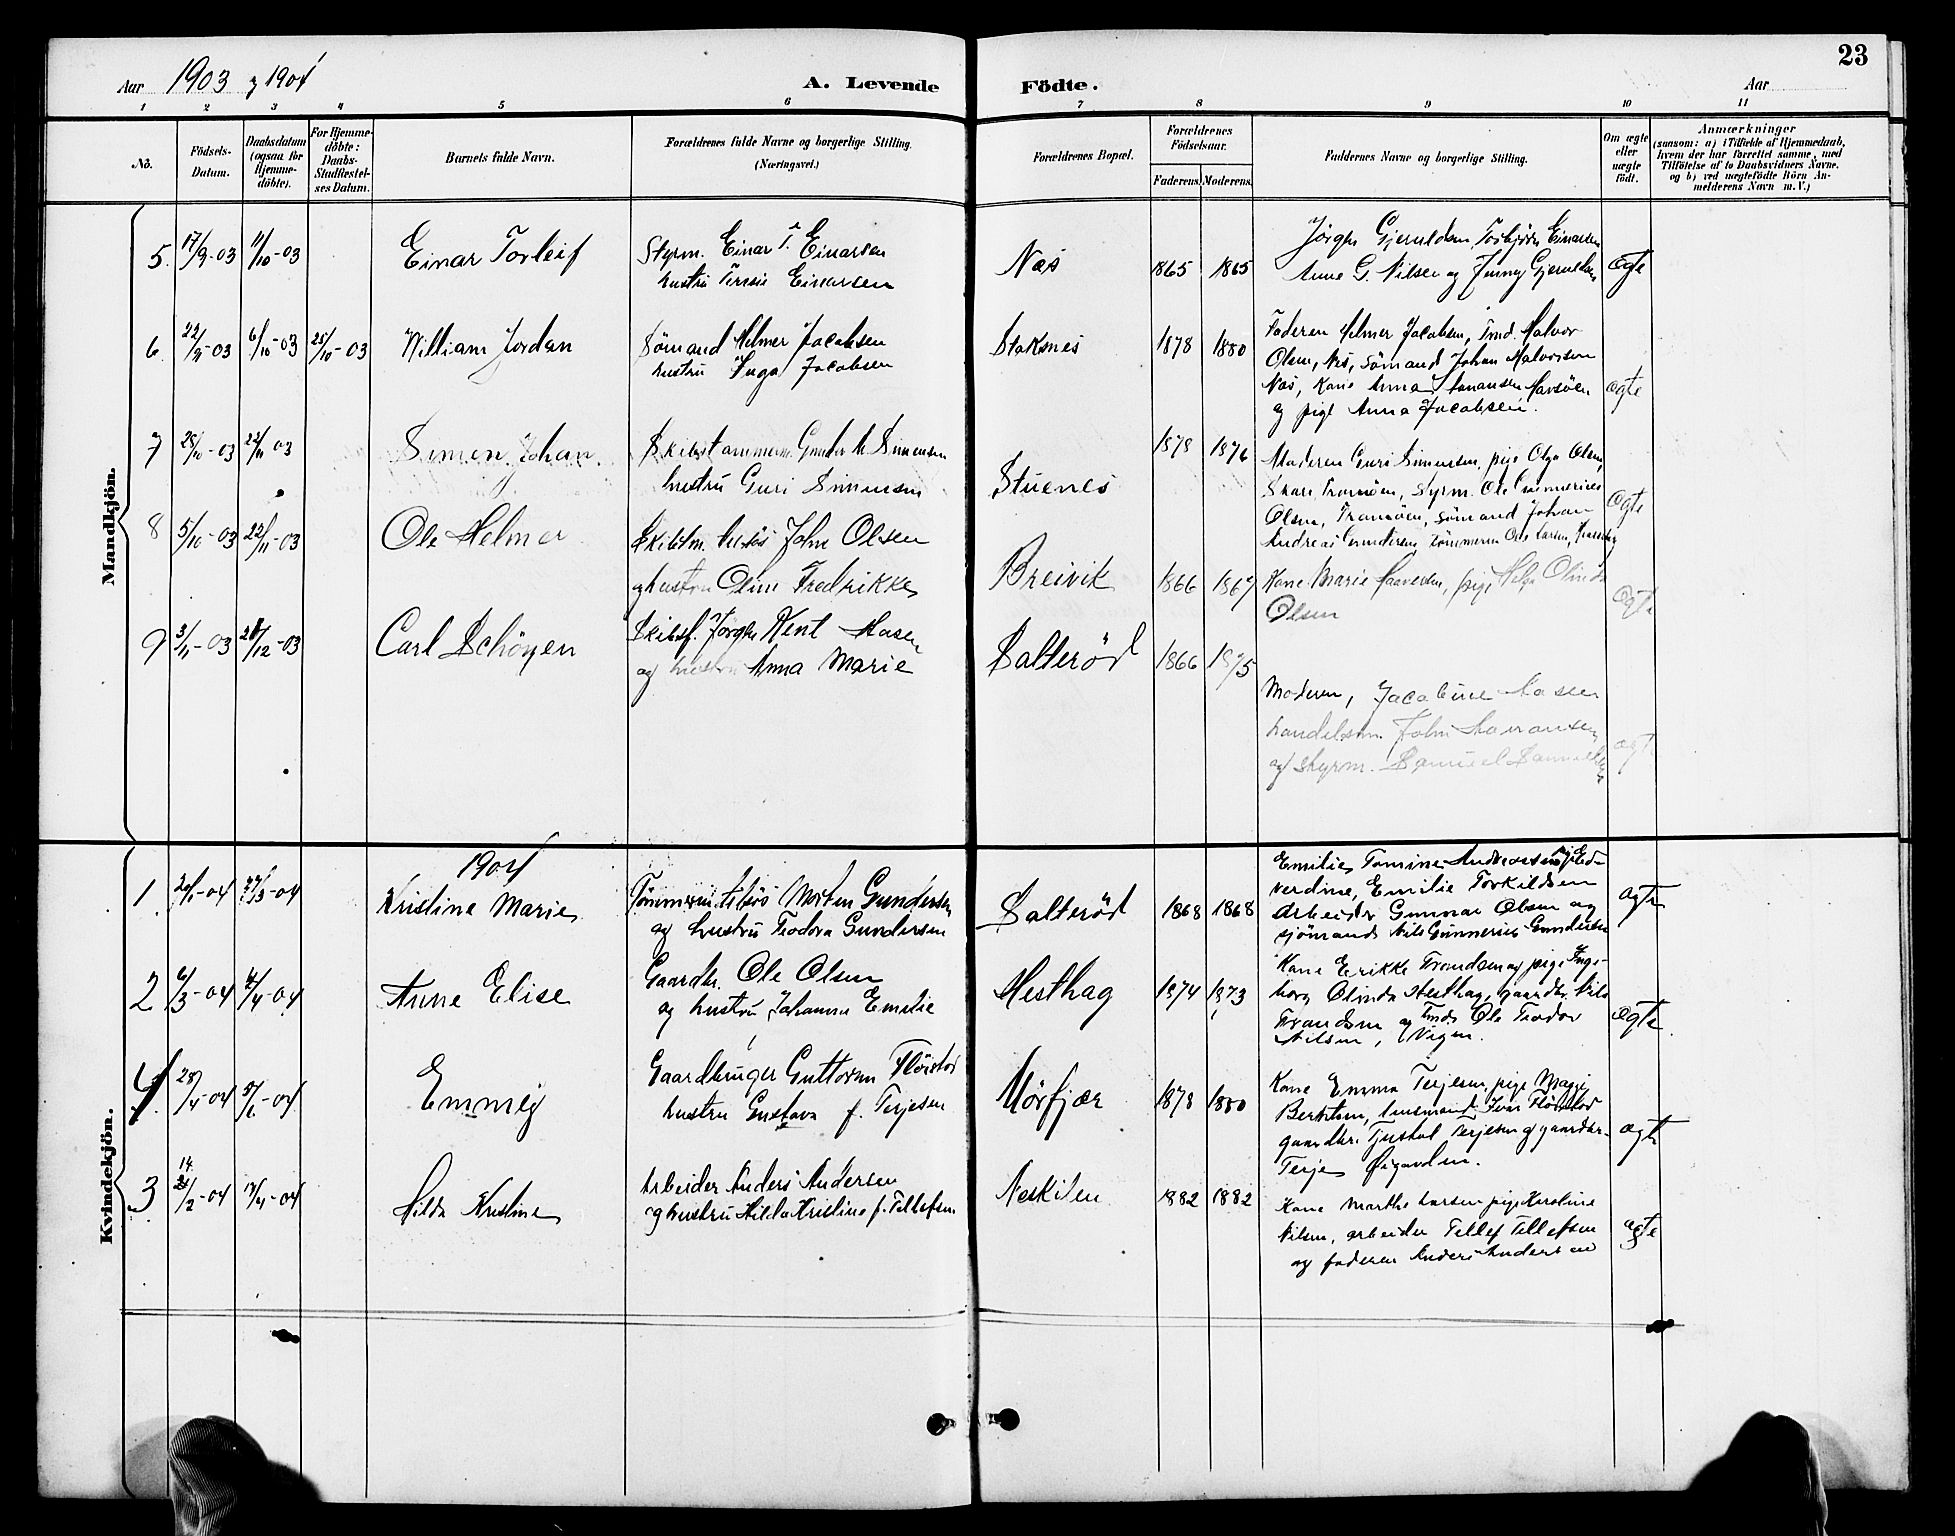 23
Aar 1903 og 1904
A. Levende Födte.
Aar
1 2 3 4 5 6 7 8 9 10 11
No.
Födsels-
Datum.
Daabsdatum
(ogsaa for
Hjemme-
döbte).
For Hjemme-
döbte:
Daabs-
Stadfæstel-
ses Datum.
Barnets fulde Navn.
Forældrenes fulde Navne og borgerlige Stilling.
(Næringsvei.)
Forældrenes Bopæl.
Forældrenes
Födselsaar.
Faderens. Moderens.
Faddernes Navne og borgerlige Stilling.
Om ægte
eller
uægte
födt.
Anmærkninger
(saasom: a) i Tilfælde af Hjemmedaab,
hvem der har forrettet samme, med
Tilföielse af to Daabsvidners Navne,
og b) ved uægtefödte Börn An-
melderens Navn m. V.)
Mandkjön.
5. 17/9-03 11/10-03 Einar Torleif
Styrm. Einar T. Einarsen
hustru Teresie Einarsen
Næs 1865 1865
Jörgen Gjeruldsen, Torbjörn Einarsen
Anne G. Nilsen og Jenny Gjeruldsen
ægte
6. 22/9-03 6/10-03 25/10-03 William Jordan
Sömand Helmer Jacobsen
hustru Inga Jacobsen
Staksnes 1878 1880
Faderen Helmer Jacobsen, Halvor
Olsen, Næs, sömand Johan Halvorsen
Næs, Kone Anna Havsöen
og pige Anna Jacobsen.
ægte
7 28/10-03 22/11 03 Simen Johan
Skibstømmerm. Gunder M. Simensen
hustru Guri Simensen
Stuenes 1878 1876
Moderen Guri Simensen, pige Olga Olsen,
Skare, Tromöen, styrm. Ole Gunnerius
Olsen, Tromöen, sömand Johan
Andreas Gundersen, tömmerm Ole Larsen,
ægte
8 5/10-03 22/11-03 Ole Helmer
Skibstm. John Olsen
og hustru Oline Fredrikke
Breivik 1866 1867
Kone Marie Haavesen, pige Helga Olinda
Olsen
ægte
9 3/11-03 28/12-03 Carl Schöyen
Skibsf. Jörgen Kent Aasen
og hustru Anna Marie
Salteröd 1866 1875
Moderen, Jacobine Aasen
handelsm. John
og styrm. Samuel Samuelsen
ægte
Kvindekjön.
1904
1. 20/1-04 27/3-04 Kristine Marie
Tömmerm. Morten Gundersen
og hustru Teodora Gundersen
Salteröd 1868 1868
Emilie Tomine Andreassen, pige Ed-
verdine, Emilie Torkildsen
arbeider Gunnar Olsen og
sjömand Nils Gunnerius Gundersen
ægte
2 6/3-04 4/4-04 Anne Elise
Gaardbr. Ole Olsen
og hustru Johanne Emilie
Hesthag 1874 1873
Kone Erikke Frandsen og pige Inge-
borg Olinda Hesthag, gaardbr. Nils
Frandsen og Ole Teodor
Nilsen, Vigen.
ægte
4. 28/4-04 5/6-04 Emmy
Gaardbruger Guttorm Flöistad
hustru Gustava f. Terjesen
Mörfjær 1878 1880
Kone Emma Terjesen, pige Maggi
Berntsen, Ivar Flöistad
gaardbr. Terjesen og gaardbr.
Terje
ægte
3 14/2-04 17/4-04 Hilda Kristine
Arbeider Anders Andersen
og hustru Hilda Kristine f. Tellefsen
Neskilen 1882 1882
Kone Marthe Larsen pige Karoline
Nilsen, arbeider Tellef Tellefsen
og faderen Anders Andersen
ægte